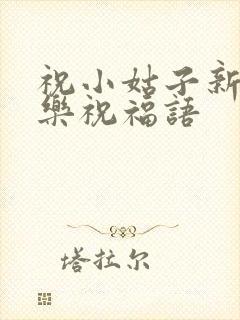 祝小姑子新
樂祝福語
塔拉尔